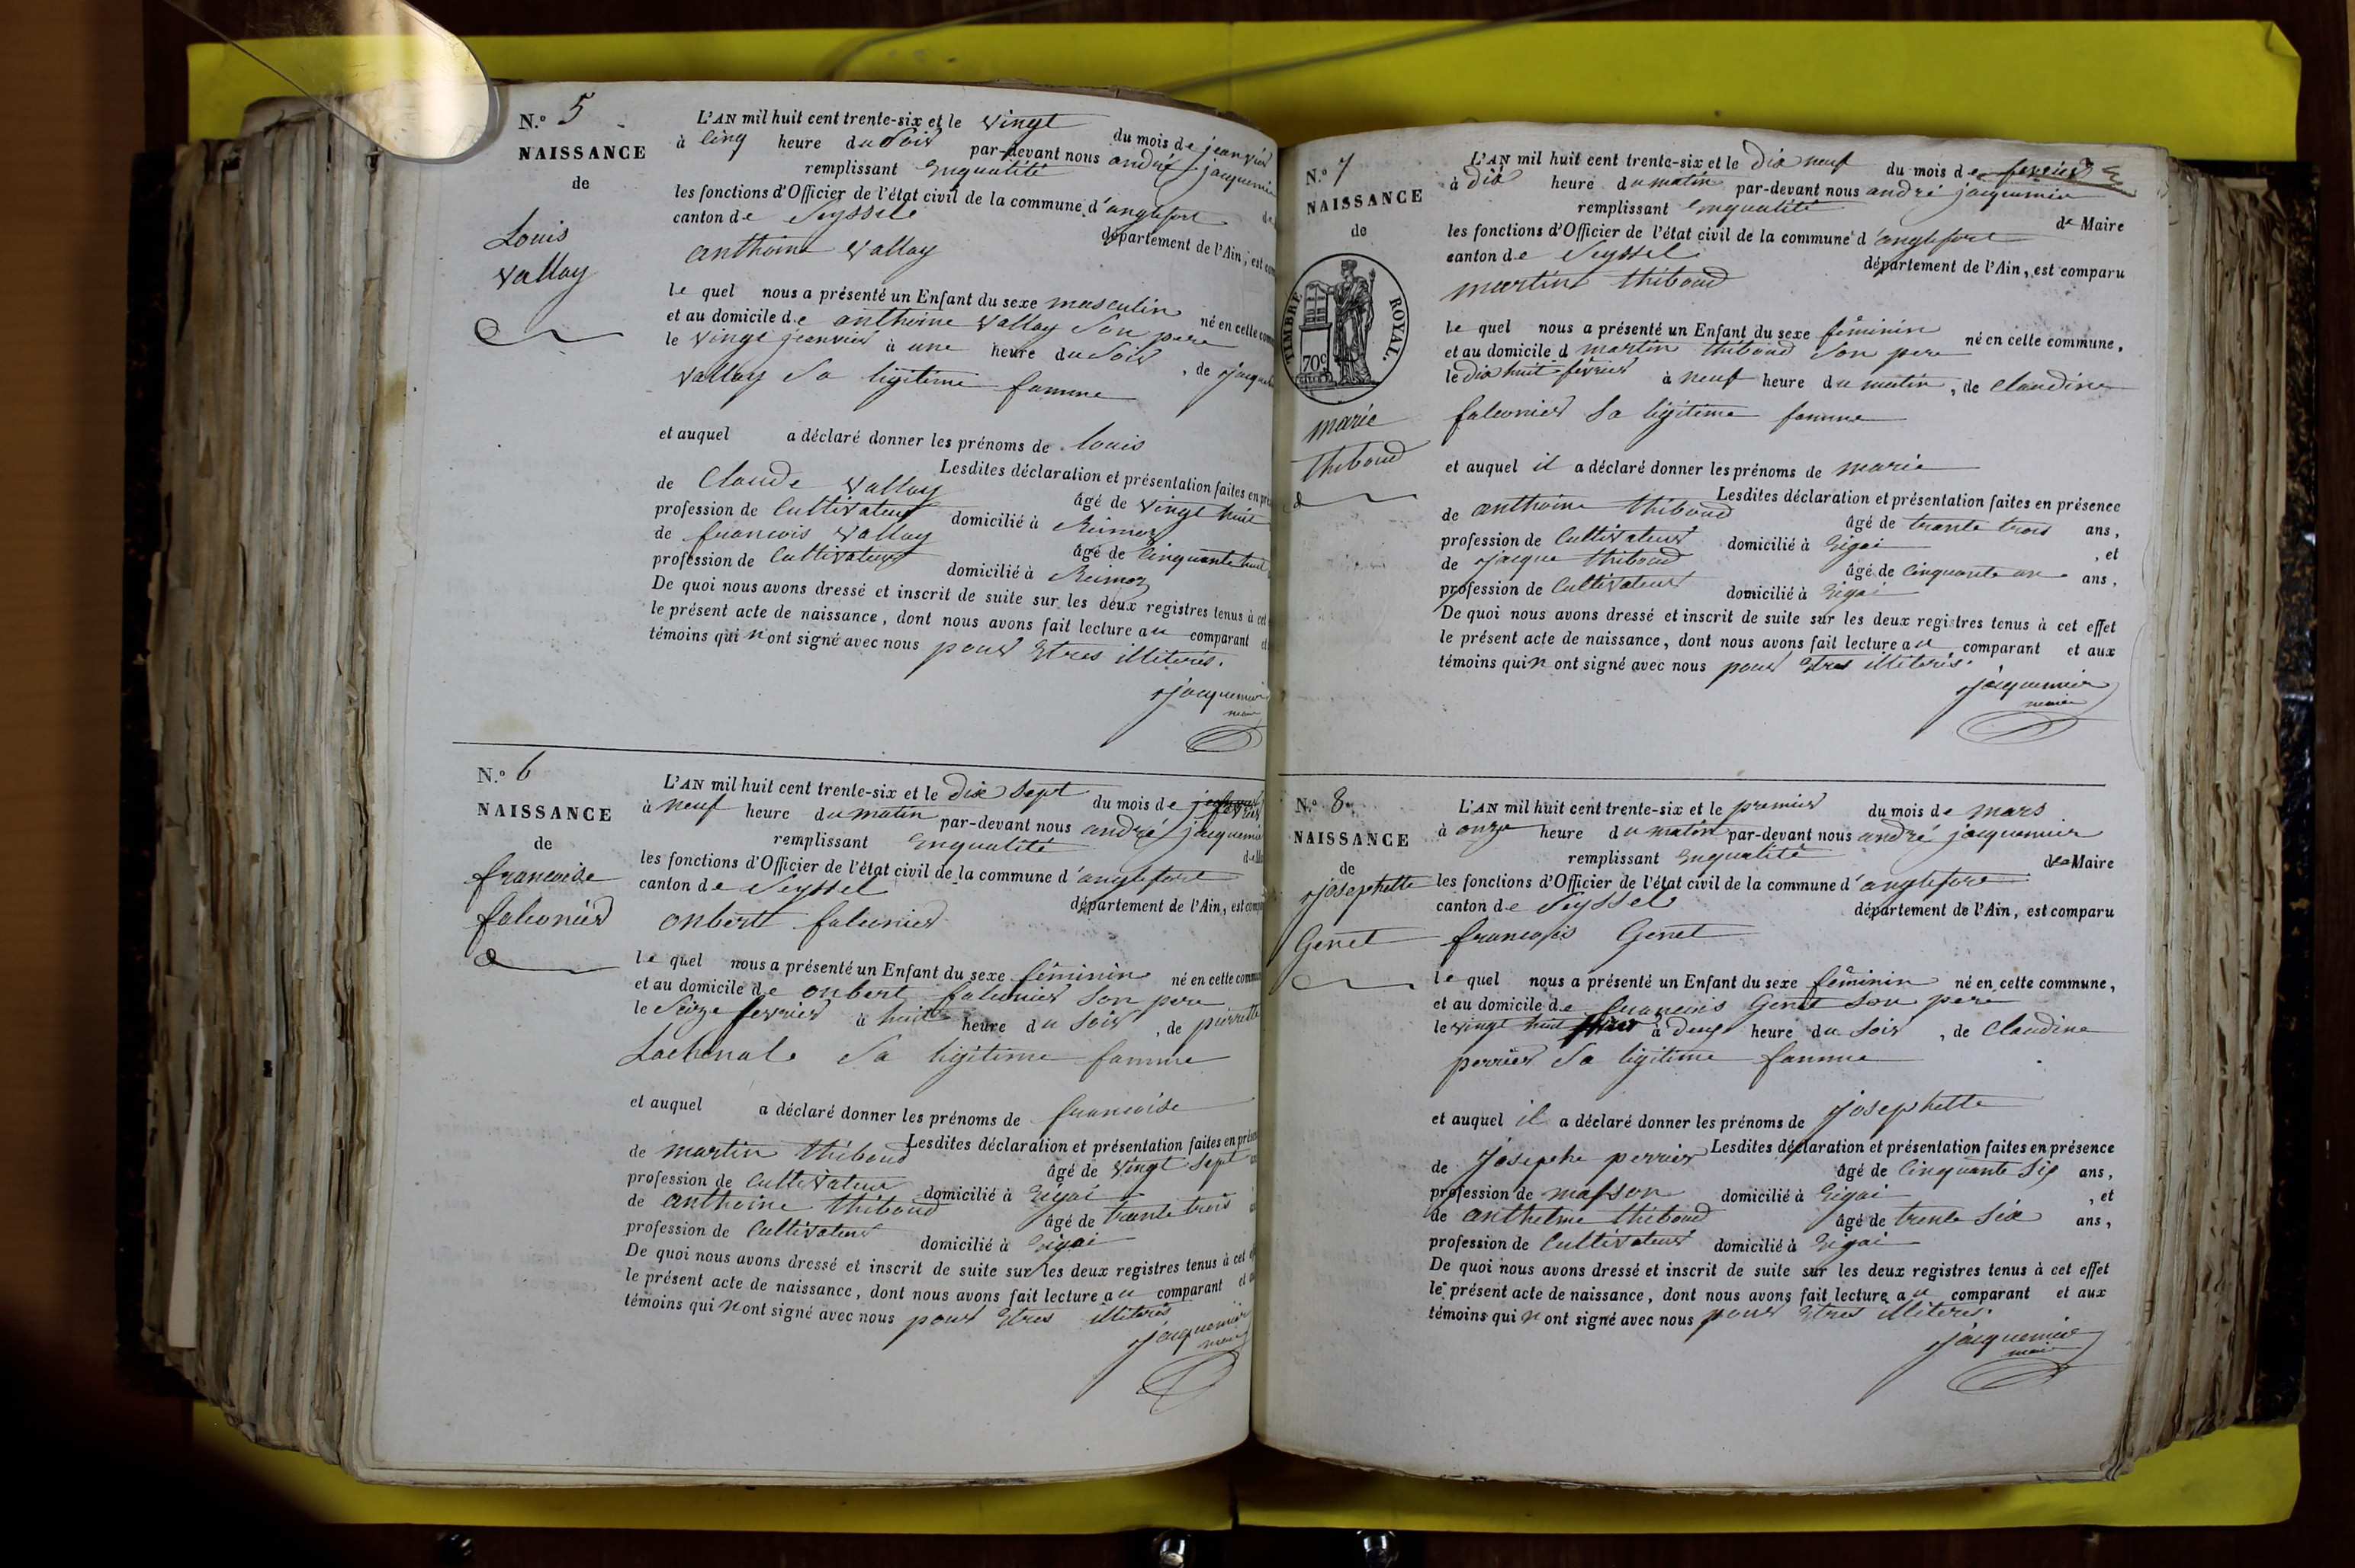 N.º 5
NAISSANCE
de
Louis
Vallay
L'AN mil huit cent trente-six et le vingt du mois de jeanvier
à Cinq heure du Soir par-devant nous andré jacquemier
remplissant Enqualité
les fonctions d'Officier de l'état civil de la commune d'anglefort
canton de Seyssel département de l'Ain, est
anthoine Vallay
le quel nous a présenté un Enfant du sexe masculin né en cette
et au domicile de anthoine Vallay Son pere
le vingt jeanvier à une heure du Soir, de
Vallay Sa ligitime famme
et auquel a déclaré donner les prénoms de Louis
Lesdites déclaration et présentation faites en
de Claude Vallay âgé de vingt huit
profession de Cultivateur domicilié à
de francois Vallay âgé de Cinquante huit
profession de Cultivateur domicilié à
De quoi nous avons dressé et inscrit de suite sur les deux registres tenus à cet
le présent acte de naissance, dont nous avons fait lecture au comparant et
témoins qui n'ont signé avec nous pour Etres illiterés.
jacquemier
maire
N.º 6
NAISSANCE
de
francoise
falconier
L'AN mil huit cent trente-six et le Dix Sept du mois de fevrier
à neuf heure du matin par-devant nous andré jacquemier
remplissant Enqualité
les fonctions d'Officier de l'état civil de la commune d'anglefort
canton de Seyssel département de l'Ain, est
onbert falconier
le quel nous a présenté un Enfant du sexe féminin né en cette
et au domicile de onbert falconier Son pere
le Seize fevrier à huit heure du Soir, de pierrette
Lachenal Sa ligitime famme
et auquel a déclaré donner les prénoms de francoise
Lesdites déclaration et présentation faites en
de martin thiboud âgé de vingt Sept
profession de Cultivateur domicilié à Eigai
de anthoine thiboud âgé de trante trois
profession de Cultivateur domicilié à Eigai
De quoi nous avons dressé et inscrit de suite sur les deux registres tenus à cet
le présent acte de naissance, dont nous avons fait lecture au comparant et
témoins qui n'ont signé avec nous pour Etres illiterés
jacquemier
maire
N.º 7
NAISSANCE
de
TIMBRE ROYAL.
70c
marie
thiboud
L'AN mil huit cent trente-six et le Dix neuf du mois de fevrier
à Dix heure du matin par-devant nous andré jacquemier
remplissant Enqualité de Maire
les fonctions d'Officier de l'état civil de la commune d'anglefort
canton de Seyssel département de l'Ain, est comparu
martin thiboud
le quel nous a présenté un Enfant du sexe féminin né en cette commune,
et au domicile d martin thiboud Son pere
le Dix huit fevrier à neuf heure du matin, de Claudine
falconier Sa ligitime famme
et auquel il a déclaré donner les prénoms de marie
Lesdites déclaration et présentation faites en présence
de anthoine thiboud âgé de trante trois ans,
profession de Cultivateur domicilié à Eigai, et
de jacque thiboud âgé de Cinquante un ans,
profession de Cultivateur domicilié à Eigai
De quoi nous avons dressé et inscrit de suite sur les deux registres tenus à cet effet
le présent acte de naissance, dont nous avons fait lecture au comparant et aux
témoins qui n'ont signé avec nous pour Etres illiterés.
jacquemier
maire
N.º 8
NAISSANCE
de
josephette
Genet
L'AN mil huit cent trente-six et le premier du mois de mars
à onze heure du matin par-devant nous andré jacquemier
remplissant Enqualité de Maire
les fonctions d'Officier de l'état civil de la commune d'anglefort
canton de Seyssel département de l'Ain, est comparu
francois Genet
le quel nous a présenté un Enfant du sexe féminin né en cette commune,
et au domicile de francois Genet Son pere
le vingt huit fevrier à Deux heure du Soir, de Claudine
perrier Sa ligitime famme
et auquel il a déclaré donner les prénoms de josephette
Lesdites déclaration et présentation faites en présence
de josephe perrier âgé de Cinquante Six ans,
profession de masson domicilié à Eigai, et
de anthelme thiboud âgé de trente Six ans,
profession de Cultivateur domicilié à Eigai
De quoi nous avons dressé et inscrit de suite sur les deux registres tenus à cet effet
le présent acte de naissance, dont nous avons fait lecture au comparant et aux
témoins qui n'ont signé avec nous pour Etres illiterés.
jacquemier
maire